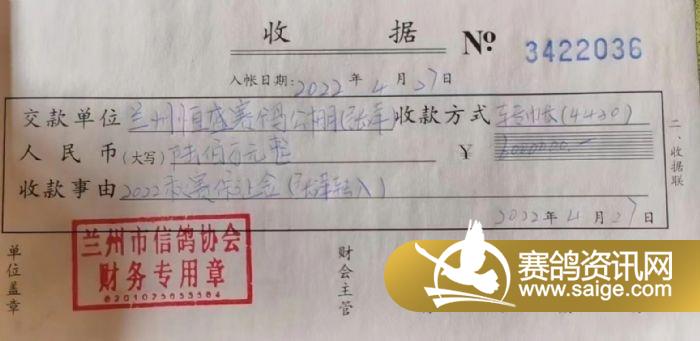 收 据 № 3422036
入帐日期: 2022 年 4 月 27 日
交款单位 兰州恒盛赛鸽公棚(张萍) 收款方式
人民币(大写) 陆佰万元整 ¥
收款事由 2022秋赛保证金(张萍转入)
2022 年 4 月 27 日
二、收据联
兰州市信鸽协会
财务专用章
单位盖章
财会主管
赛鸽资讯网
www.saige.com